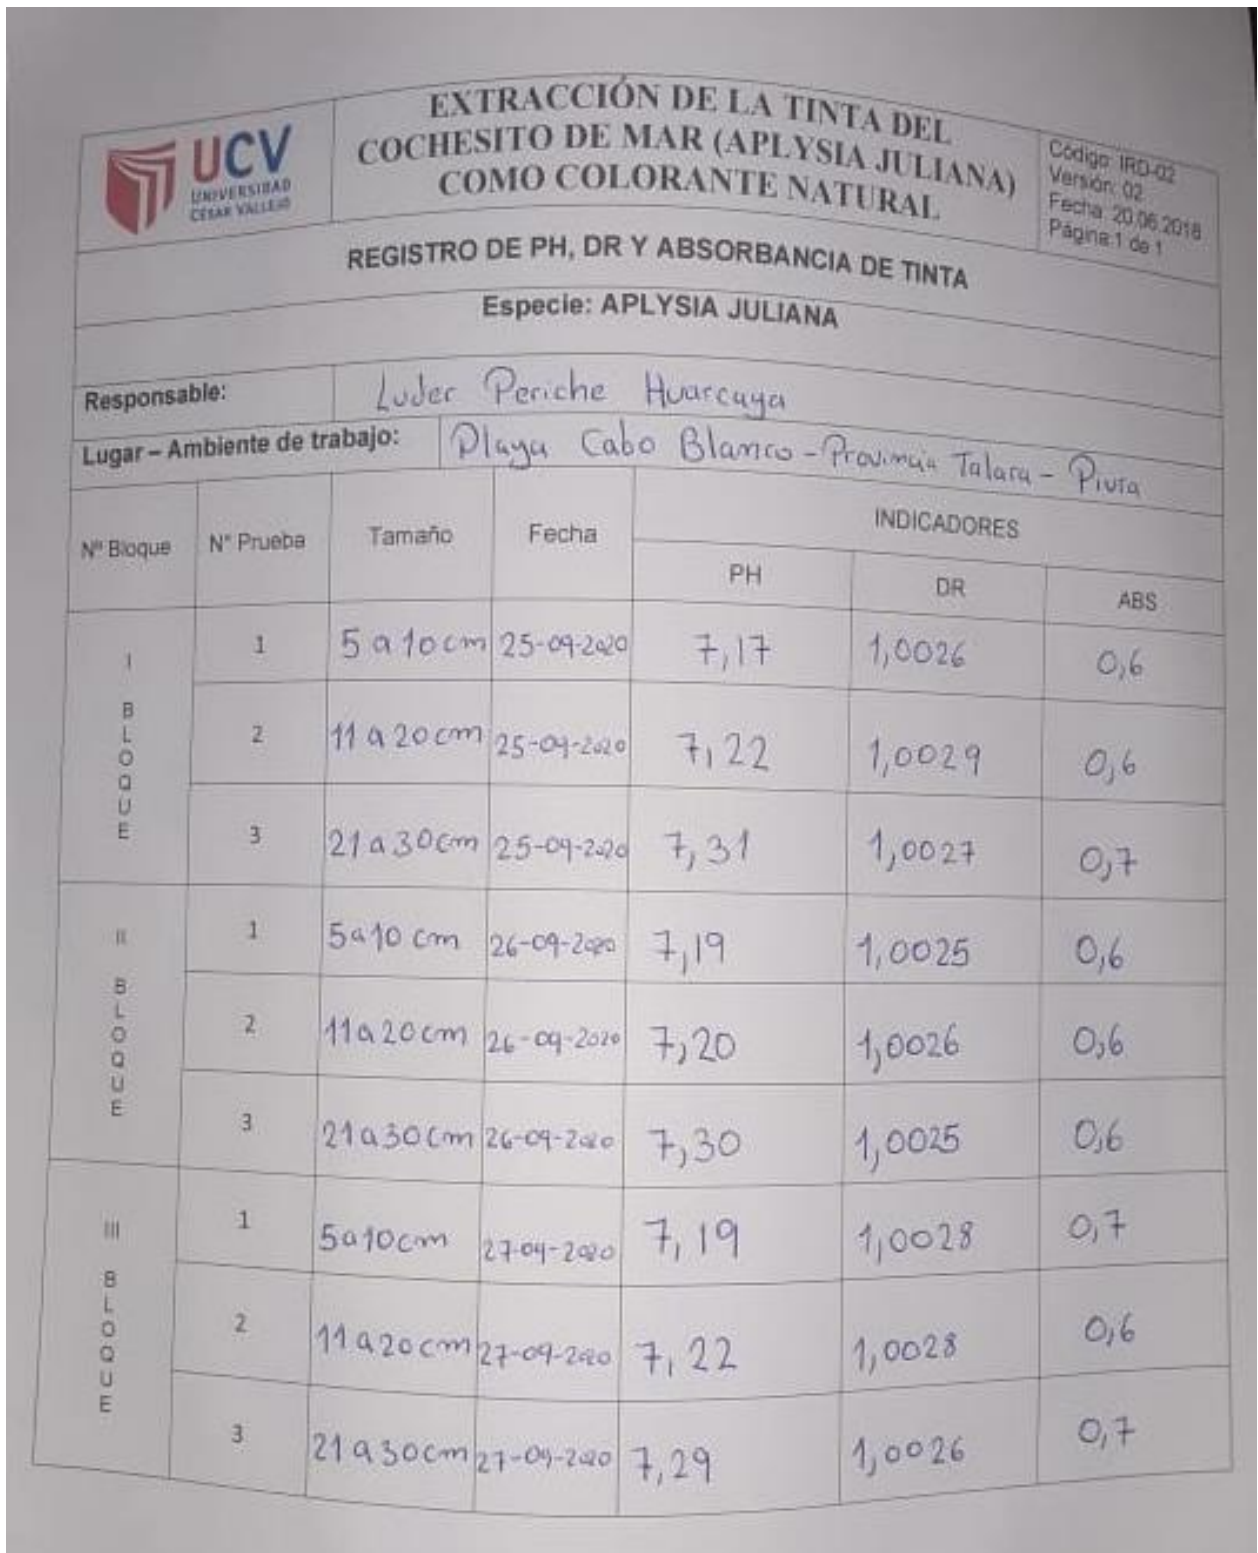 UCV
UNIVERSIDAD
CÉSAR VALLEJO
EXTRACCIÓN DE LA TINTA DEL
COCHESITO DE MAR (APLYSIA JULIANA)
COMO COLORANTE NATURAL
Código: IRD-02
Versión: 02
Fecha: 20.06.2018
Página:1 de 1
REGISTRO DE PH, DR Y ABSORBANCIA DE TINTA
Especie: APLYSIA JULIANA
Responsable: Luder Periche Huarcaya
Lugar – Ambiente de trabajo: Playa Cabo Blanco - Provincia Talara - Piura
Nº Bloque N° Prueba Tamaño Fecha INDICADORES
PH DR ABS
I BLOQUE
1 5 a 10 cm 25-09-2020 7,17 1,0026 0,6
2 11 a 20 cm 25-09-2020 7,22 1,0029 0,6
3 21 a 30 cm 25-09-2020 7,31 1,0027 0,7
II BLOQUE
1 5 a 10 cm 26-09-2020 7,19 1,0025 0,6
2 11 a 20 cm 26-09-2020 7,20 1,0026 0,6
3 21 a 30 cm 26-09-2020 7,30 1,0025 0,6
III BLOQUE
1 5 a 10 cm 27-09-2020 7,19 1,0028 0,7
2 11 a 20 cm 27-09-2020 7,22 1,0028 0,6
3 21 a 30 cm 27-09-2020 7,29 1,0026 0,7